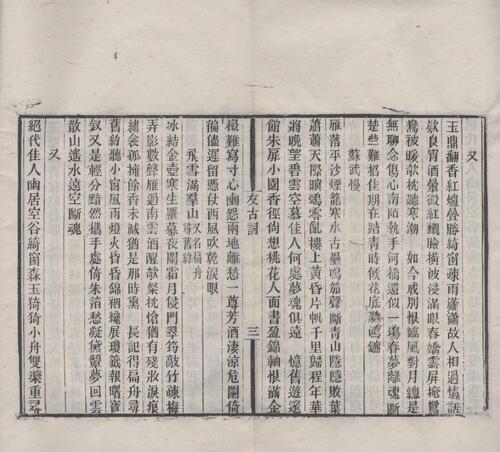 玉鼎翻香紅爐疊勝綺窗疎雨瀟瀟故人相過情話
欵良宵酒暈微紅襯臉橫波浸滿眼春嬌雲屏掩鴛
鴦被暖欹枕聽寒潮　如今成别恨臨風對月總是
無聊念傷心南陌執手河橋還似一場春夢離魂斷
楚些難招佳期在踏青時候花底聽鳴鑣
蘇武慢
雁落平沙煙籠寒水古壘鳴笳聲斷青山隱隱敗葉
蕭蕭天際暝鴉零亂樓上黃昏片帆千里歸程年華
將晚望碧雲空暮佳人何處夢魂俱遠　憶舊遊邃
館朱扉小園香徑尚想桃花人面書盈錦軸恨滿金
友古詞
三
徽難寫寸心幽怨兩地離愁一尊芳酒凄涼危闌倚
徧儘遲留憑仗西風吹乾淚眼
飛雪滿羣山 又名扁舟尋舊約
冰結金壺寒生羅幕夜闌霜月侵門翠筠敲竹疎梅
弄影數聲雁過南雲酒醒欹粲枕愴猶有殘妝淚痕
繡衾孤擁餘香未減猶是那時熏　長記得扁舟尋
舊約聽小窗風雨燈火昏昏錦裀纔展瓊籤報曙寶
釵又是輕分黯然攜手處倚朱箔愁凝黛顰夢回雲
散山遙水遠空斷魂
又
絕代佳人幽居空谷綺窗森玉猗猗小舟雙槳重尋